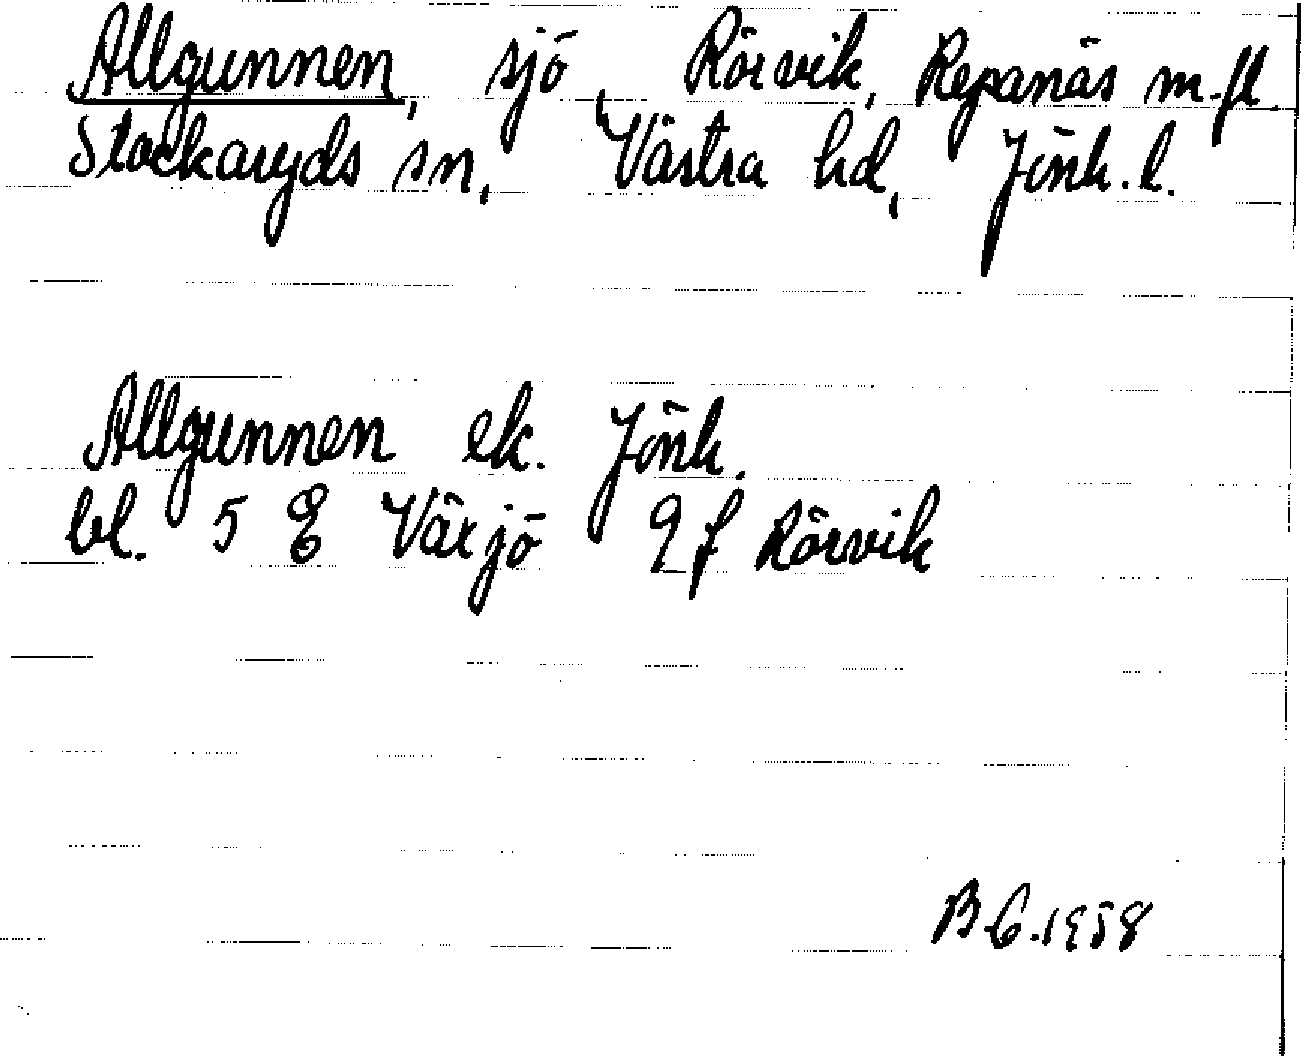 Allgunnen, sjö, Rörvik, Repanäs m.fl.
Stockaryds sn, Västra hd, Jönk. l.
Allgunnen ek. Jönk.
bl. 5 E Växjö 9 f Rörvik
B.G. 1958